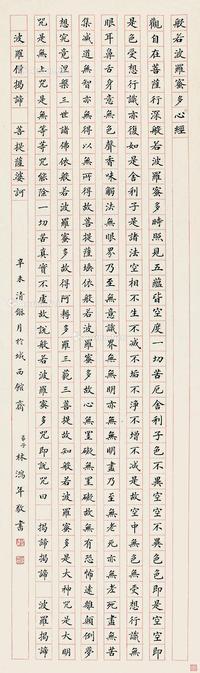 般若波羅蜜多心經
觀自在菩薩行深般若波羅蜜多時照見五蘊皆空度一切苦厄舍利子色不異空空不異色色即是空空即
是色受想行識亦復如是舍利子是諸法空相不生不滅不垢不淨不增不減是故空中無色無受想行識無
眼耳鼻舌身意無色聲香味觸法無眼界乃至無意識界無無明亦無無明盡乃至無老死亦無老死盡無苦
集滅道無智亦無得以無所得故菩提薩埵依般若波羅蜜多故心無罣礙無罣礙故無有恐怖遠離顛倒夢
想究竟涅槃三世諸佛依般若波羅蜜多故得阿耨多羅三藐三菩提故知般若波羅蜜多是大神咒是大明
咒是無上咒是無等等咒能除一切苦真實不虛故說般若波羅蜜多咒即說咒曰 揭諦揭諦 波羅揭諦
波羅僧揭諦 菩提薩婆訶
辛未清龢月於城西館齋
林鴻年敬書